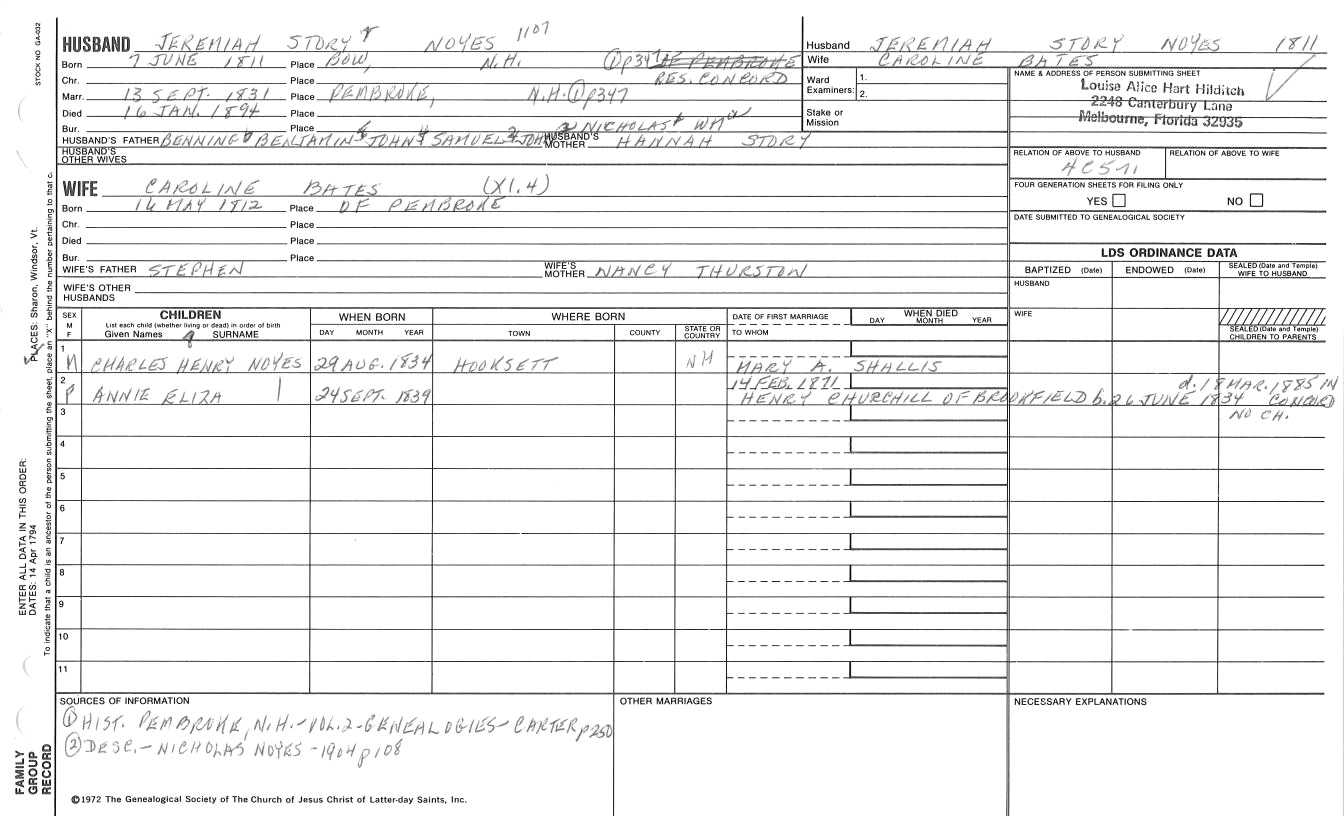 STOCK NO. GA-032
HUSBAND JEREMIAH STORY 8 NOYES 1107
Born 7 JUNE 1811 Place BOW, N.H. ① p347 OF PEMBROKE
Chr. Place RES. CONCORD
Marr. 13 SEPT. 1831 Place PEMBROKE, N.H. ① p347
Died 16 JAN. 1894 Place
Bur. Place
HUSBAND'S FATHER BENNING BENJAMIN JOHN SAMUEL JOHN NICHOLAS WM
HUSBAND'S MOTHER HANNAH STORY
HUSBAND'S OTHER WIVES
WIFE CAROLINE BATES (X1.4)
Born 16 MAY 1812 Place OF PEMBROKE
Chr. Place
Died Place
Bur. Place
WIFE'S FATHER STEPHEN
WIFE'S MOTHER NANCY THURSTON
WIFE'S OTHER HUSBANDS
Husband JEREMIAH STORY NOYES 1811
Wife CAROLINE BATES
Ward Examiners: 1.
2.
Stake or Mission
NAME & ADDRESS OF PERSON SUBMITTING SHEET
Louise Alice Hart Hilditch
2248 Canterbury Lane
Melbourne, Florida 32935
RELATION OF ABOVE TO HUSBAND RELATION OF ABOVE TO WIFE
4C5
FOUR GENERATION SHEETS FOR FILING ONLY
YES NO
DATE SUBMITTED TO GENEALOGICAL SOCIETY
LDS ORDINANCE DATA
BAPTIZED (Date) ENDOWED (Date) SEALED (Date and Temple) WIFE TO HUSBAND
HUSBAND
WIFE
SEALED (Date and Temple) CHILDREN TO PARENTS
SEX M F
CHILDREN
List each child (whether living or dead) in order of birth
Given Names 9 SURNAME
WHEN BORN
DAY MONTH YEAR
WHERE BORN
TOWN COUNTY STATE OR COUNTRY
DATE OF FIRST MARRIAGE
TO WHOM
WHEN DIED
DAY MONTH YEAR
1 M CHARLES HENRY NOYES 29 AUG. 1834 HOOKSETT NH MARY A. SHALLIS
2 F ANNIE ELIZA 24 SEPT. 1839 14 FEB. 1871 d. 18 MAR. 1885 IN
HENRY CHURCHILL OF BROOKFIELD b. 26 JUNE 1834 CONCORD
NO CH.
3
4
5
6
7
8
9
10
11
SOURCES OF INFORMATION
① HIST. PEMBROKE, N.H. - VOL. 2 - GENEALOGIES - CARTER p250
② DESC. - NICHOLAS NOYES - 1904 p108
OTHER MARRIAGES
NECESSARY EXPLANATIONS
©1972 The Genealogical Society of The Church of Jesus Christ of Latter-day Saints, Inc.
ENTER ALL DATA IN THIS ORDER:
DATES: 14 Apr 1794
PLACES: Sharon, Windsor, Vt.
To indicate that a child is an ancestor of the person submitting the sheet, place an "X" behind the number pertaining to that c.
FAMILY
GROUP
RECORD